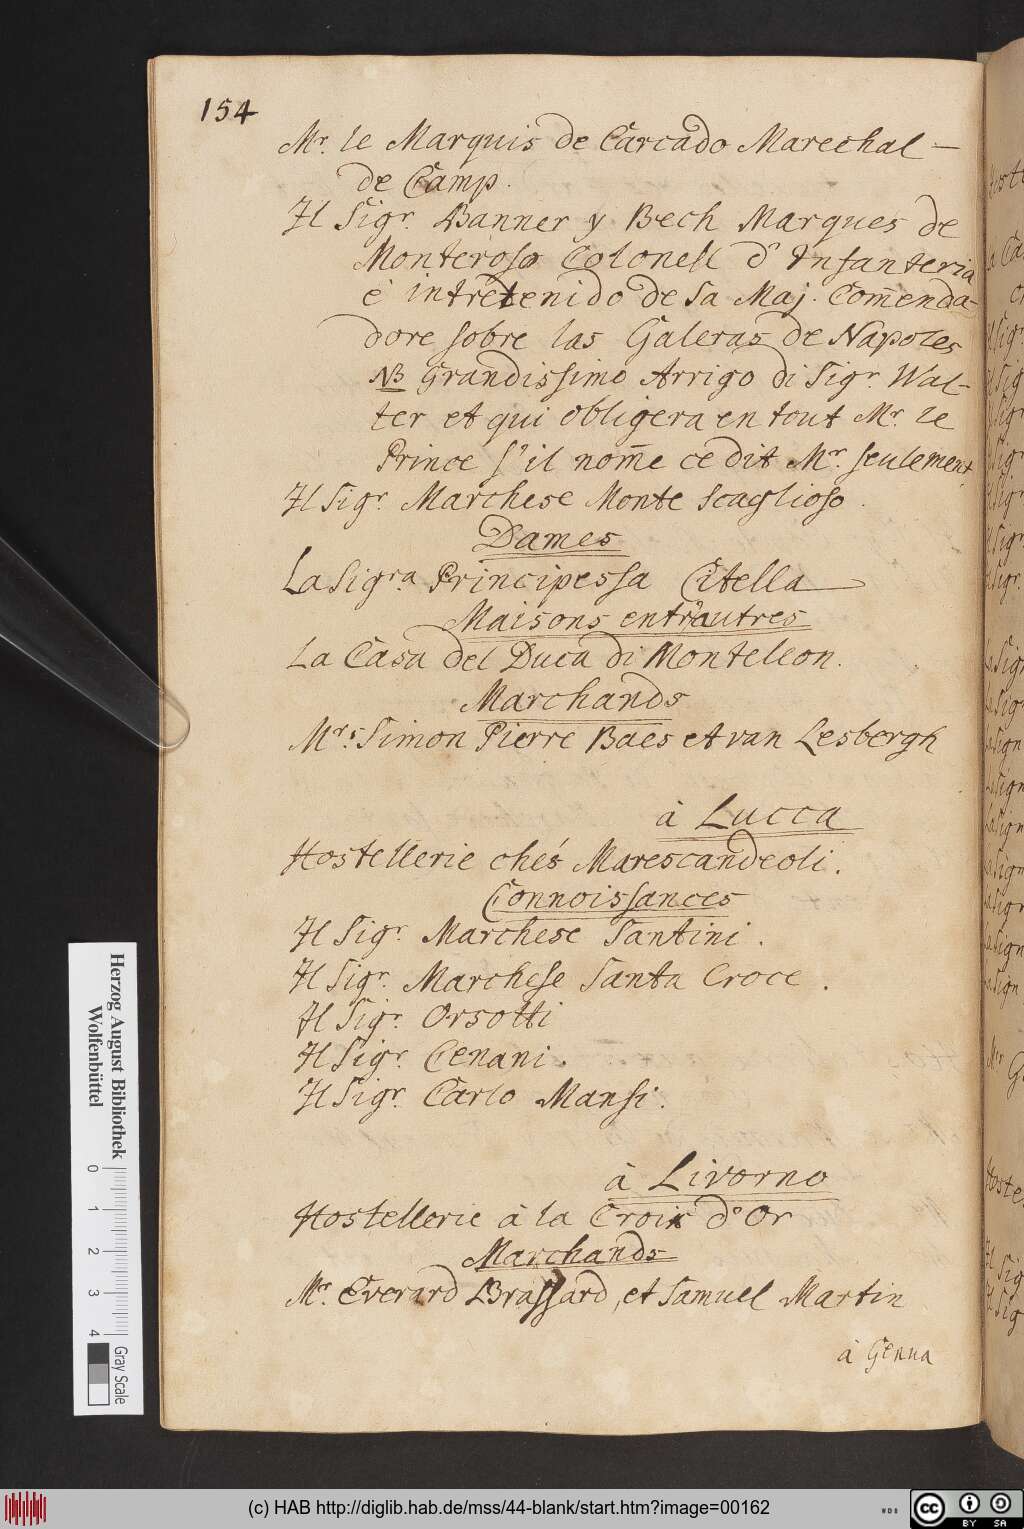 154
Mr. le Marquis de Carcado Marechal –
de Camp.
Il Sigr. Banner y Bech Marques de
Monteroso Colonell d'Infanteria
è intretenido de Sa Maj. Com̅enda-
dore sobre las Galeras de Napoles
NB Grandissimo Arrigo di Sigr. Wal-
ter et qui obligera en tout Mr. le
Prince s'il nom̅e ce dit Mr. seulement
Il Sigr. Marchese Monte Scaglioso.
Dames
La Sigra Principessa Citella
Maisons entr'autres
La Casa del Duca di Montelеon.
Marchands
Mrs. Simon Pierre Baes et van Lesbergh
à Lucca
Hostellerie chés Marescandeoli.
Connoissances
Il Sigr. Marchese Santini.
Il Sigr. Marchese Santa Croce.
Il Sigr. Orsotti
Il Sigr. Cenani.
Il Sigr. Carlo Mansi.
à Livorno
Hostellerie à la Croix d'Or
Marchands
Mr. Everard Brassard, et Samuel Martin
à Genua
Herzog August Bibliothek
Wolfenbüttel
0 1 2 3 4
Gray Scale
(c) HAB http://diglib.hab.de/mss/44-blank/start.htm?image=00162
WDB
cc BY SA